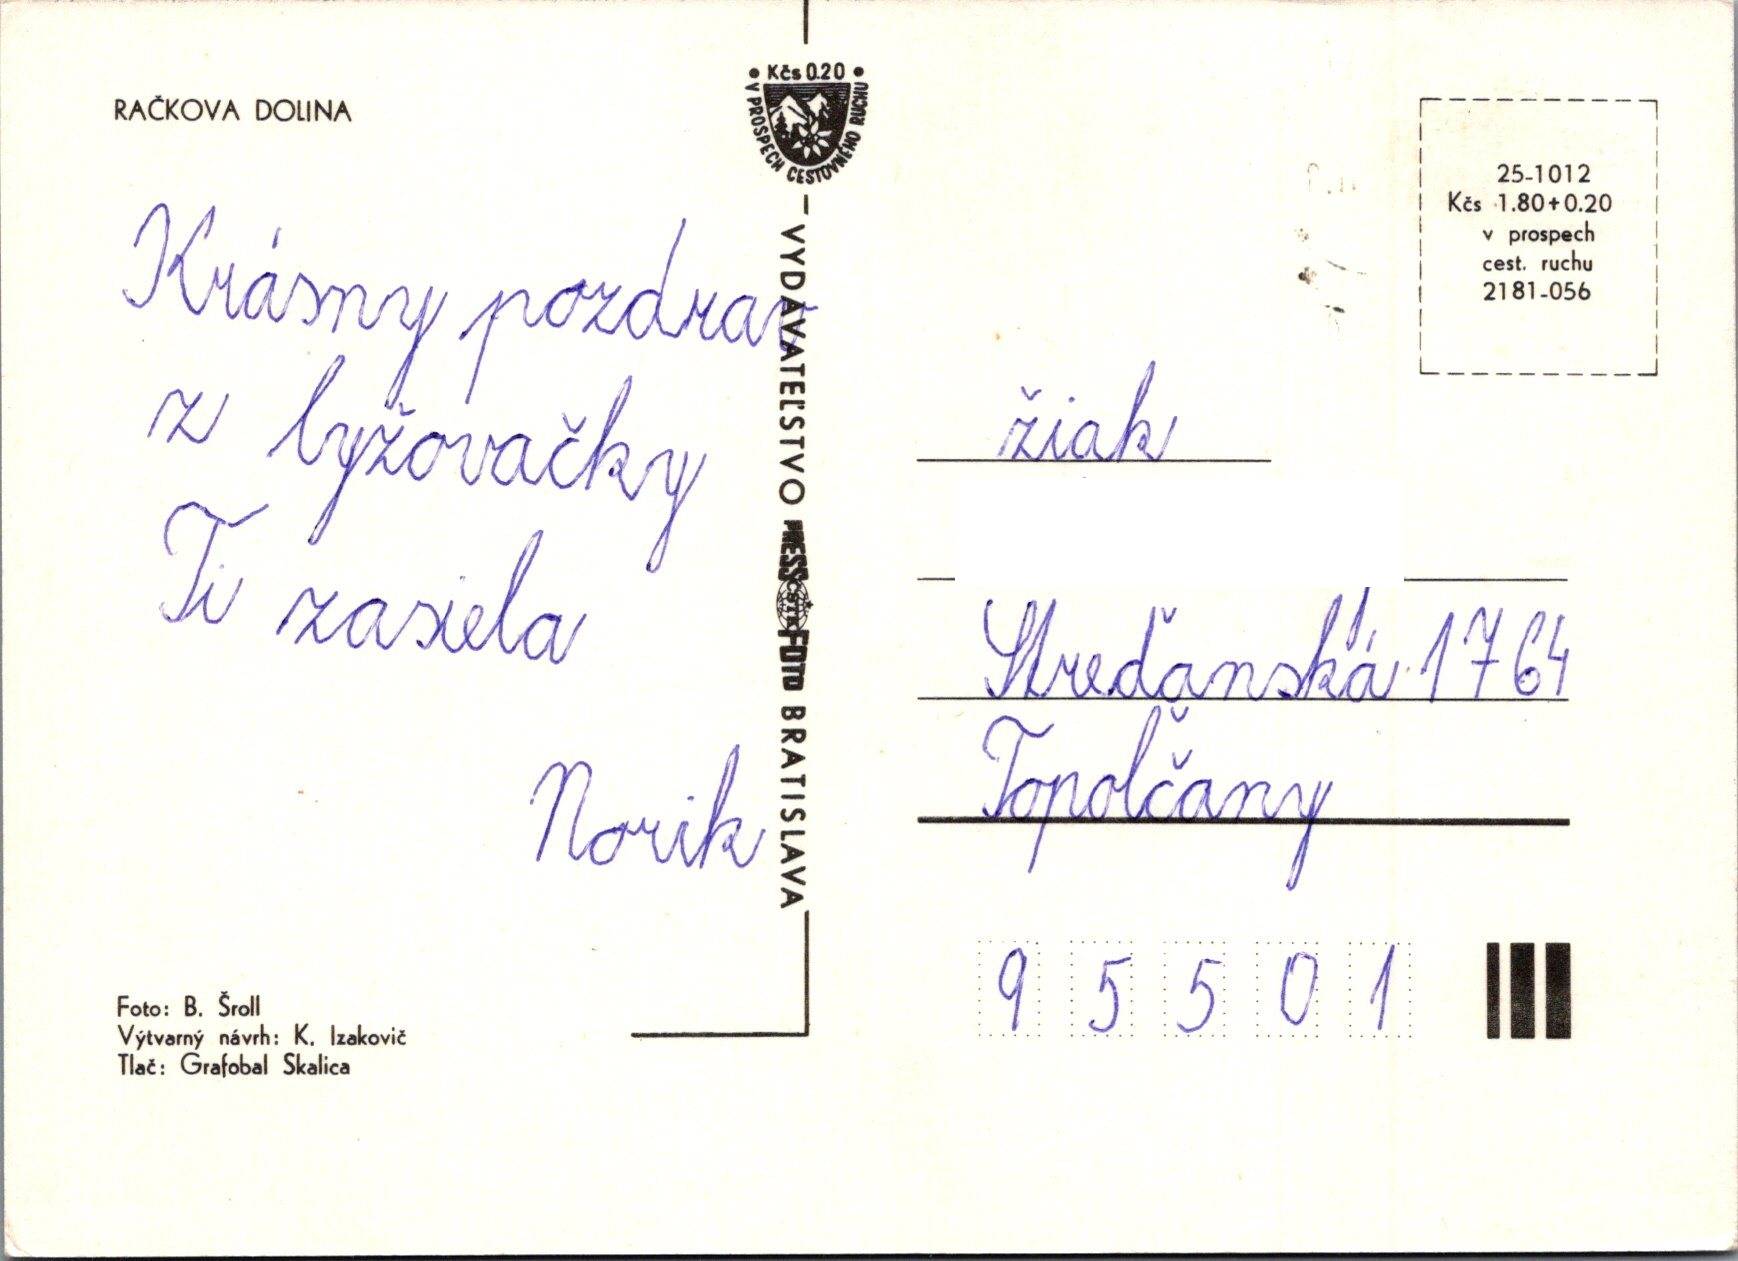 RAČKOVA DOLINA
Krásny pozdrav
z lyžovačky
Ti zasiela
Norik
Foto: B. Šroll
Výtvarný návrh: K. Izakovič
Tlač: Grafobal Skalica
Kčs 0.20
V PROSPECH CESTOVNÉHO RUCHU
VYDAVATEĽSTVO PRESSFOTO BRATISLAVA
ČSTK
25-1012
Kčs 1.80+0.20
v prospech
cest. ruchu
2181-056
žiak
Streďanská 1764
Topoľčany
95501